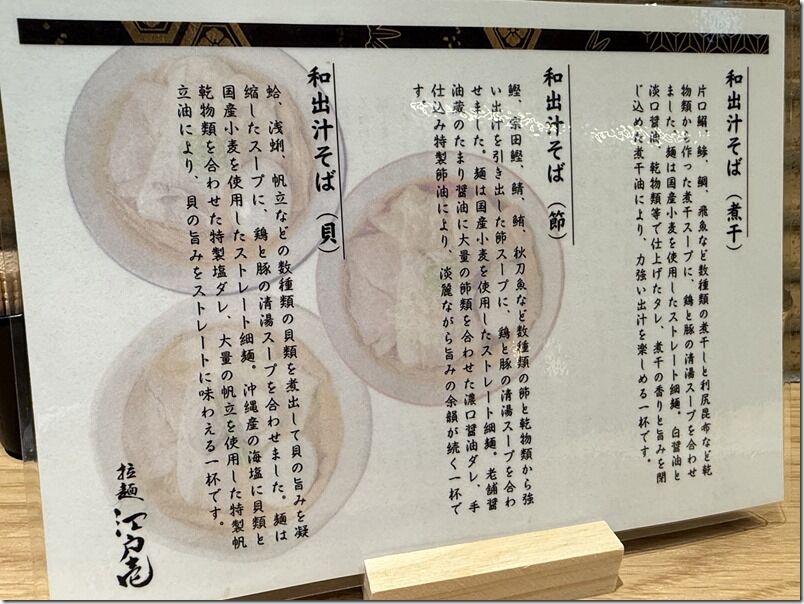 和出汁そば（煮干）
片口鰯、鯵、鯛、飛魚など数種類の煮干しと利尻昆布など乾
物類から作った煮干スープに、鶏と豚の清湯スープを合わせ
ました。麺は国産小麦を使用したストレート細麺。白醤油と
淡口醤油、乾物類等で仕上げたタレ、煮干の香りと旨みを閉
じ込めた煮干油により、力強い出汁を楽しめる一杯です。
和出汁そば（節）
鰹、宗田鰹、鯖、鮪、秋刀魚など数種類の節と乾物類から強
い出汁を引き出した節スープに、鶏と豚の清湯スープを合わ
せました。麺は国産小麦を使用したストレート細麺。老舗醤
油蔵のたまり醤油に大量の節類を合わせた濃口醤油ダレ、手
仕込み特製節油により、淡麗ながら旨みの余韻が続く一杯で
す
和出汁そば（貝）
蛤、浅蜊、帆立などの数種類の貝類を煮出して貝の旨みを凝
縮したスープに、鶏と豚の清湯スープを合わせました。麺は
国産小麦を使用したストレート細麺。沖縄産の海塩に貝類と
乾物類を合わせた特製塩ダレ、大量の帆立を使用した特製帆
立油により、貝の旨みをストレートに味わえる一杯です。
拉麺 江戸壱